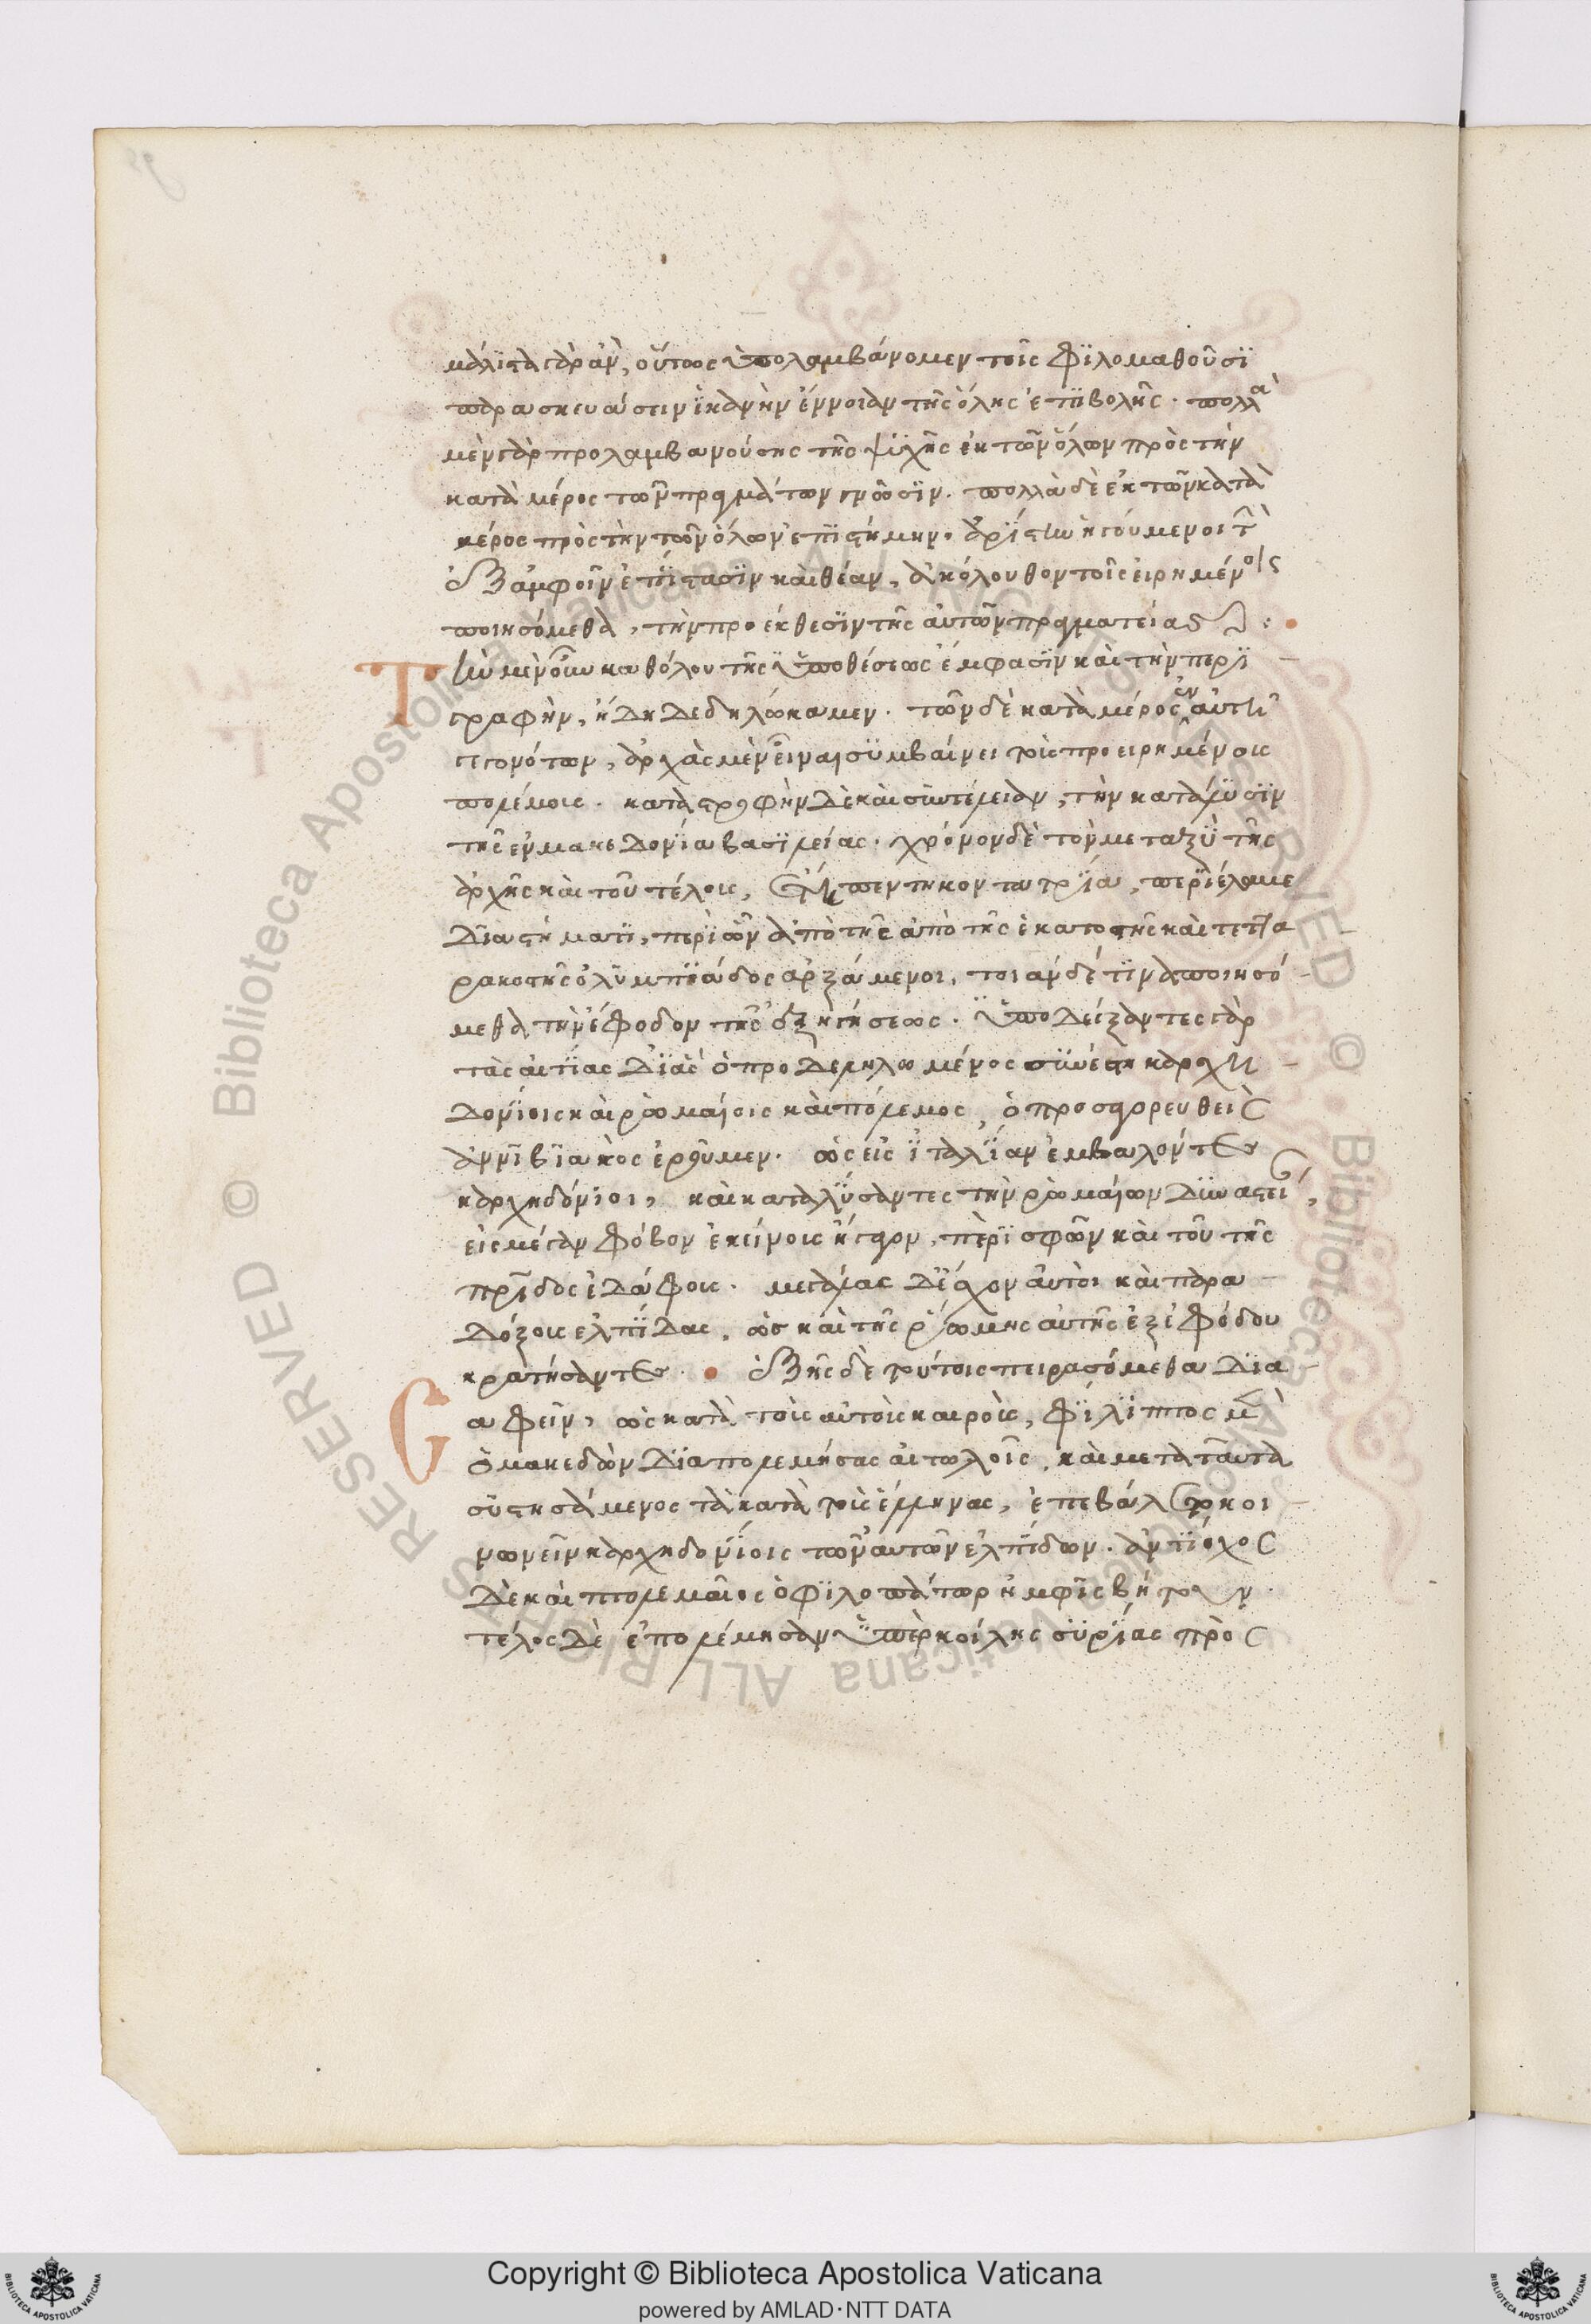 μάλιστα γὰρ ἂν, οὕτως ὑπολαμβάνομεν τοῖς φϊλομαθοῦσϊ
παρασκευάσειν ϊκανὴν ἔννοιαν τῆς ὅλης ἐπϊβολῆς · πολλὰ
μὲν γὰρ προλαμβανούσης τῆς ψϋχῆς ἐκ τῶν ὅλων πρὸς τὴν
κατὰ μέρος τῶν πραγμάτων γνῶσϊν · πολλὰ δὲ ἐκ τῶν κατὰ
μέρος πρὸς τὴν τῶν ὅλων ἐπϊστήμην · ἀρίστην ἡγούμενοι τὴν
ἐξ ἀμφοῖν ἐπΐστασϊν καὶ θέαν, ἀκόλουθον τοῖς εἰρημένοις
ποιησόμεθα, τὴν προέκθεσϊν τῆς αὐτῶν πραγματείας :
Τὴν μὲν οὖν καθόλου τῆς ϋποθέσεως ἔμφασϊν καὶ τὴν περϊ
γραφὴν, ἤδη δεδηλώκαμεν · τῶν δὲ κατὰ μέρος ἐν αὐτῆ
γεγονότων, ἀρχὰς μὲν εἶναι σϋμβαίνει τοὺς προειρημένους
πολέμους · καταστροφὴν δὲ καὶ συντέλειαν, τὴν κατάλϋσϊν
τῆς ἐν μακεδονία βασϊλείας · χρόνον δὲ τὸν μεταξὺ τῆς
ἀρχῆς καὶ τοῦ τέλους, ἔτη πεντηκοντατρία, περϊέλαμε
διαστήματϊ, περὶ ὧν ἀπὸ τῆς ἀπὸ τῆς ἑκατοστῆς καὶ τετ̅τα
ρακοστῆς ὀλϋμπιάδος ἀρξάμενοι, τοιανδέ τϊνα ποιησό
μεθα τὴν ἔφοδον τῆς ἐξηγήσεως · ϋποδείξαντες γὰρ
τὰς αἰτίας δϊ ἃς ὁ προδεδηλωμένος συνέστη καρχη
δονΐοις καὶ ρωμαίοις καὶ πόλεμος, ὁ προσαγορευθεὶς
ἀννϊβϊακὸς ἐροῦμεν · ὡς εἰς ϊταλΐαν ἐμβαλόντες
καρχηδόνϊοι, καὶ καταλύσαντες τὴν ρωμαίων δϋναστεί,
εἰς μέγαν φόβον ἐκείνους ἤγαγον, περὶ σφῶν καὶ τοῦ τῆς
πρΐδος ἐδάφους · μεγάλας δὲ ἔσχον αὐτοὶ καὶ παρα
δόξους ελπΐδας, ὡς καὶ τῆς ρώμης αὐτῆς ἐξ ἐφόδου
κρατήσαντες · ἑξῆς δὲ τούτοις πειρασόμεθα δια
σαφεῖν, ὡς κατὰ τοὺς αὐτοὺς καιροὺς, φΐλιππος μὲν
ὁ μακεδὼν διαπολεμήσας αἰτωλοῖς, καὶ μετὰ ταῦτα
σϋστησάμενος τὰ κατὰ τοὺς ἕλληνας, ἐπεβάλετο κοι
νωνεῖν καρχηδονΐοις τῶν αὐτῶν ἐλπΐδων · ἀντΐοχος
δὲ καὶ πτολεμαῖος ὁ φϊλοπάτωρ ἠμφισβήτουν ·
τέλος δὲ ἐπολέμησαν ϋπὲρ κοίλης σϋρΐας πρὸς
Copyright © Biblioteca Apostolica Vaticana
powered by AMLAD·NTT DATA